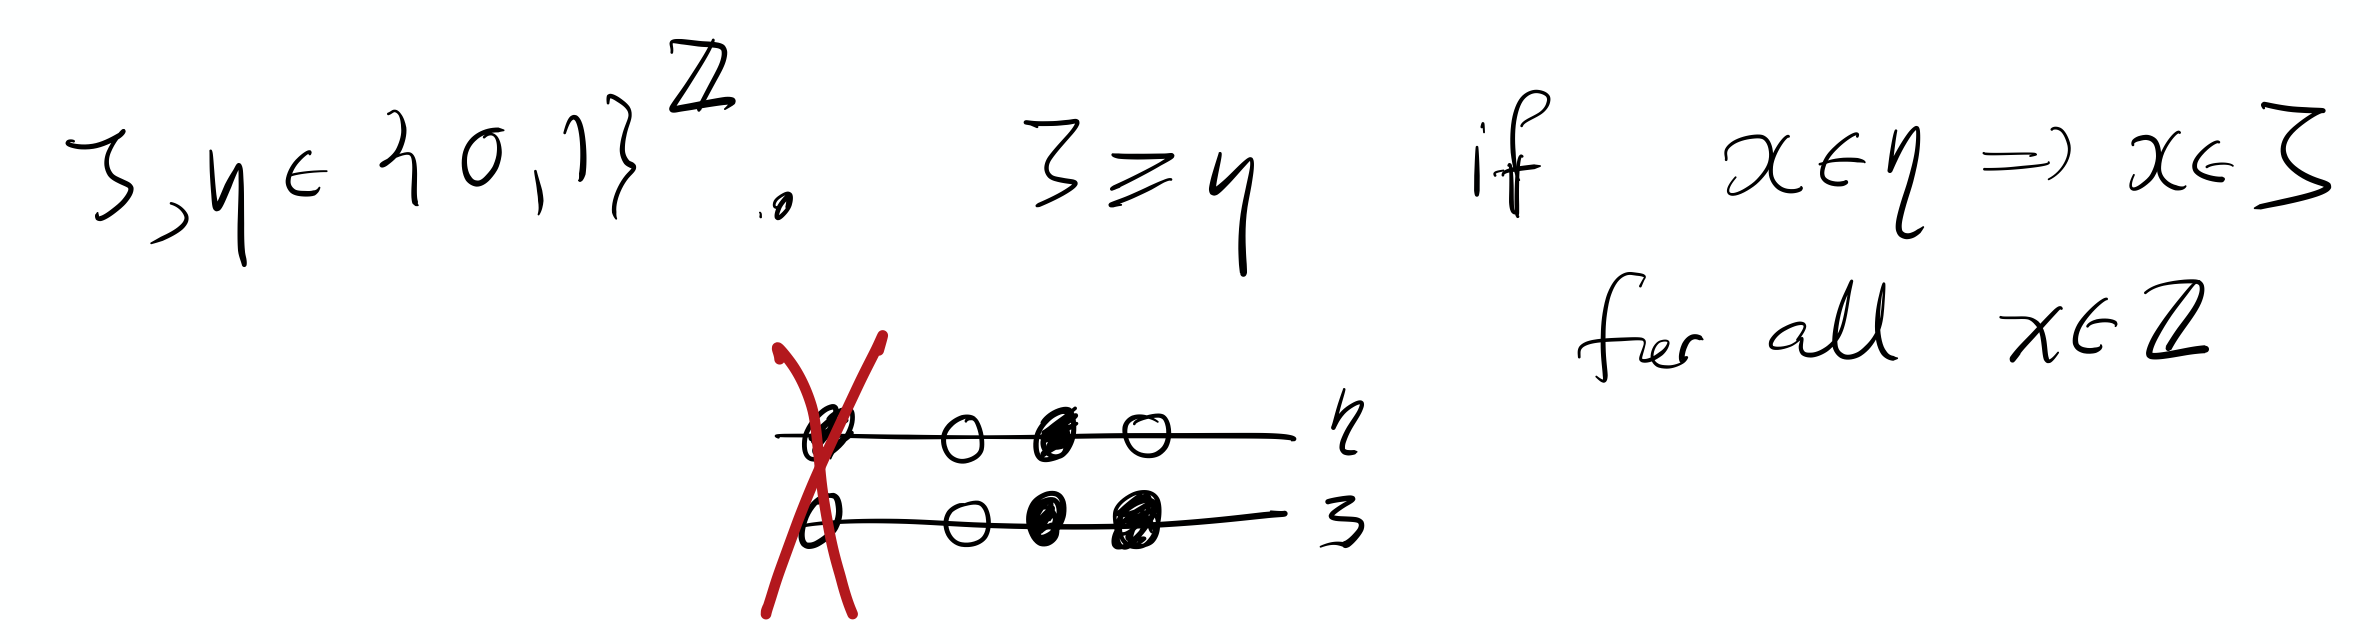 ξ, η ∈ {0,1}^ℤ. ξ ≥ η if x ∈ η ⇒ x ∈ ξ
for all x ∈ ℤ
η
ξ